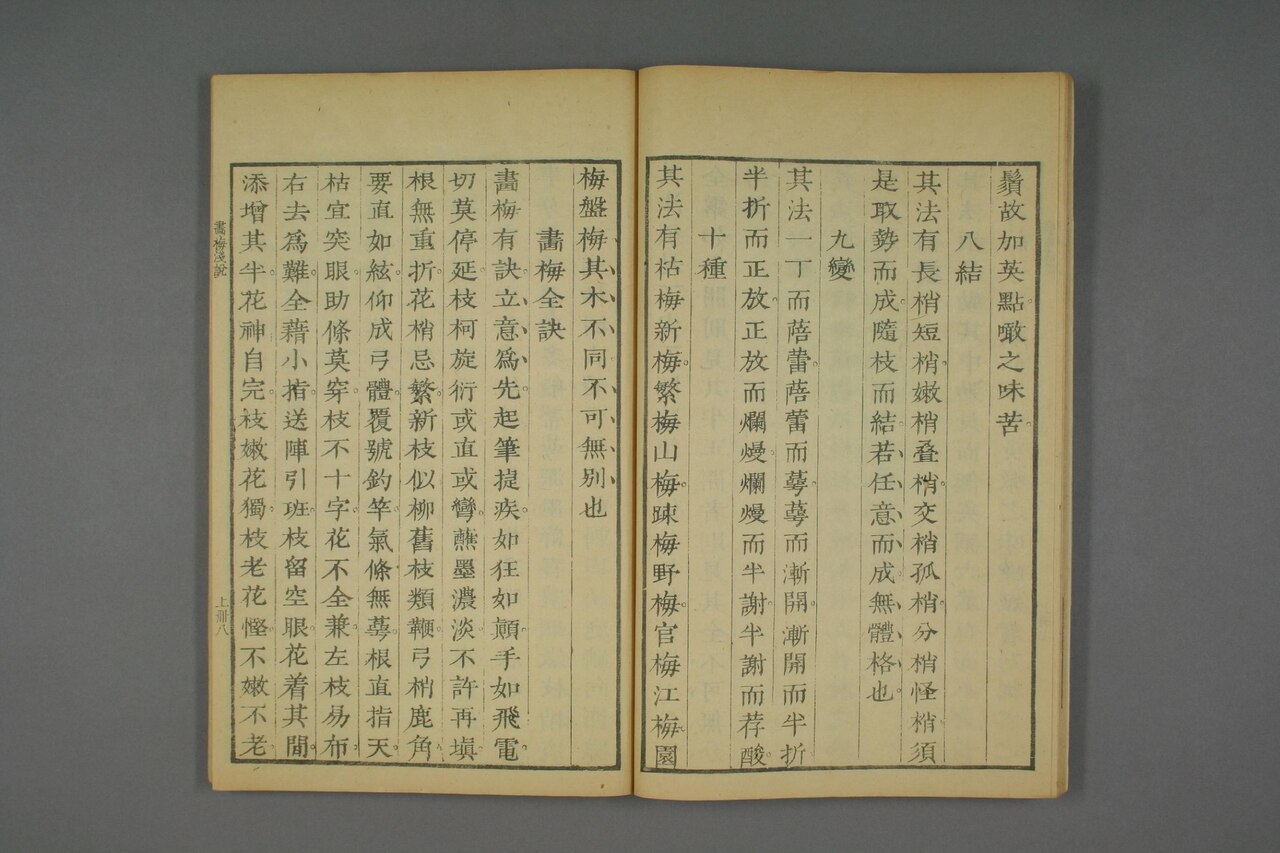 鬚故加英點噉之味苦。
八結
其法有長梢短梢嫩梢叠梢交梢孤梢分梢怪梢須
是取勢而成隨枝而結若任意而成無體格也。
九變
其法一丁而蓓蕾。蓓蕾而萼。萼而漸開。漸開而半折
半折而正放。正放而爛熳。爛熳而半謝。半謝而荐酸。
十種
其法有枯梅新梅。繁梅山梅。疎梅野梅。官梅江梅。園
梅盤梅其木不同不可無别也
畫梅全訣
畫梅有訣。立意爲先。起筆提疾。如狂如顛。手如飛電
切莫停延。枝柯旋衍。或直或彎。蘸墨濃淡。不許再塡。
根無重折。花梢忌繁。新枝似柳。舊枝類鞭。弓梢鹿角
要直如絃。仰成弓體。覆號釣竿。氣條無萼。根直指天。
枯宜突眼。助條莫穿。枝不十字。花不全兼。左枝易布。
右去爲難。全藉小指。送陣引班。枝留空眼。花着其間。
添增其半。花神自完。枝嫩花獨。枝老花慳。不嫩不老
畫梅淺說
上卌八